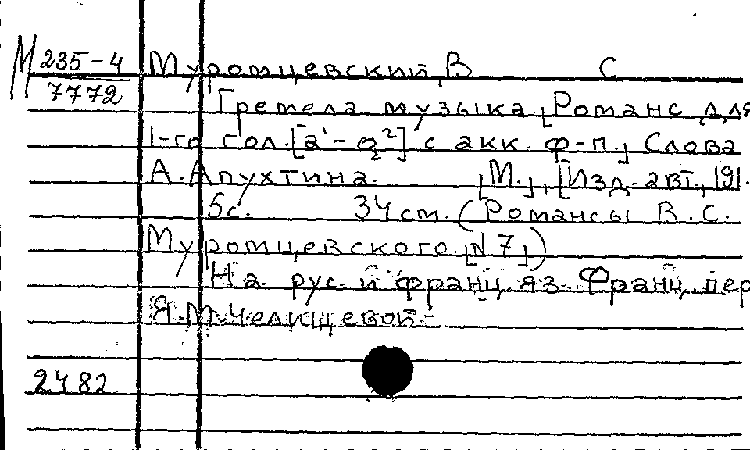 М 235-4 Муромцевский, В С
7772 Гремела музыка [Романс для
1-го гол. [a¹-g²] с акк. ф-п.] Слова
А. Апухтина. [М.], [Изд. авт., 191.
5с. 34 см. (Романсы В. С.
Муромцевского [N 7])
На рус. и франц. яз. Франц. пер
Я. М. Челищевой
2482